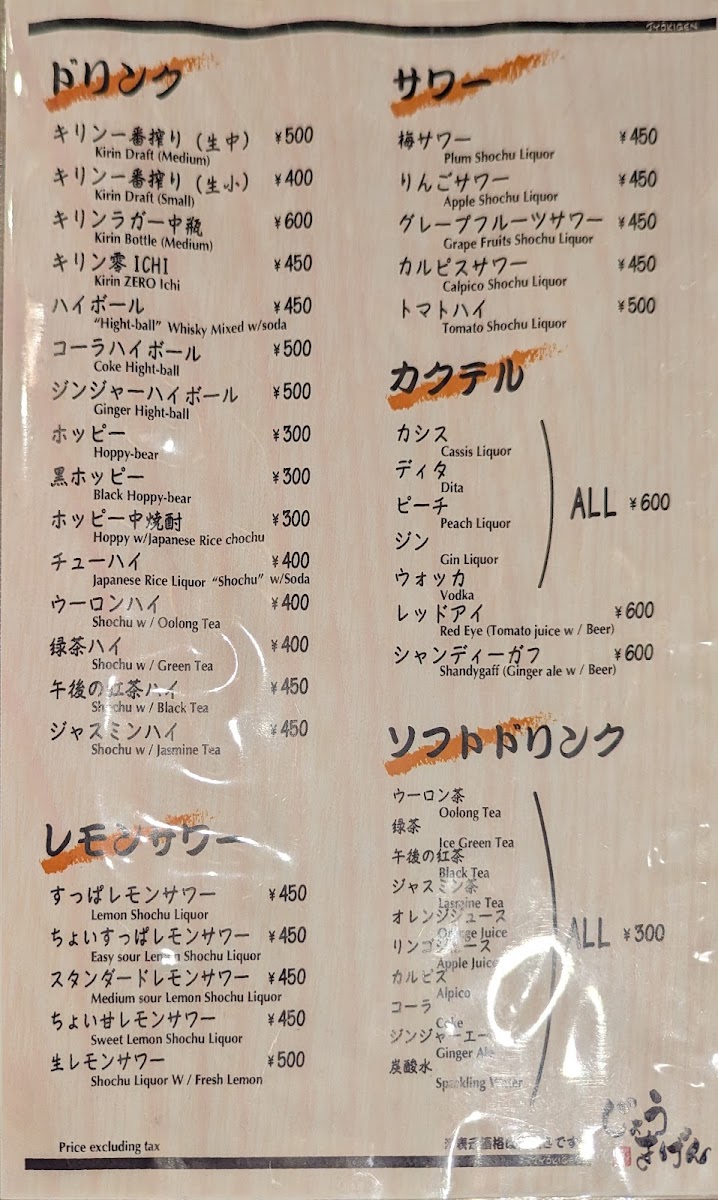 JYŌKIGEN
ドリンク
キリン一番搾り（生中） ¥500
Kirin Draft (Medium)
キリン一番搾り（生小） ¥400
Kirin Draft (Small)
キリンラガー中瓶 ¥600
Kirin Bottle (Medium)
キリン零ICHI ¥450
Kirin ZERO Ichi
ハイボール ¥450
“Hight-ball” Whisky Mixed w/soda
コーラハイボール ¥500
Coke Hight-ball
ジンジャーハイボール ¥500
Ginger Hight-ball
ホッピー ¥300
Hoppy-bear
黒ホッピー ¥300
Black Hoppy-bear
ホッピー中焼酎 ¥300
Hoppy w/Japanese Rice chochu
チューハイ ¥400
Japanese Rice Liquor “Shochu” w/Soda
ウーロンハイ ¥400
Shochu w / Oolong Tea
緑茶ハイ ¥400
Shochu w / Green Tea
午後の紅茶ハイ ¥450
Shochu w / Black Tea
ジャスミンハイ ¥450
Shochu w / Jasmine Tea
レモンサワー
すっぱレモンサワー ¥450
Lemon Shochu Liquor
ちょいすっぱレモンサワー ¥450
Easy sour Lemon Shochu Liquor
スタンダードレモンサワー ¥450
Medium sour Lemon Shochu Liquor
ちょい甘レモンサワー ¥450
Sweet Lemon Shochu Liquor
生レモンサワー ¥500
Shochu Liquor W / Fresh Lemon
Price excluding tax
サワー
梅サワー ¥450
Plum Shochu Liquor
りんごサワー ¥450
Apple Shochu Liquor
グレープフルーツサワー ¥450
Grape Fruits Shochu Liquor
カルピスサワー ¥450
Calpico Shochu Liquor
トマトハイ ¥500
Tomato Shochu Liquor
カクテル
カシス
Cassis Liquor
ディタ
Dita
ピーチ
Peach Liquor
ジン
Gin Liquor
ウォッカ
Vodka
ALL ¥600
レッドアイ ¥600
Red Eye (Tomato juice w / Beer)
シャンディーガフ ¥600
Shandygaff (Ginger ale w / Beer)
ソフトドリンク
ウーロン茶
Oolong Tea
緑茶
Ice Green Tea
午後の紅茶
Black Tea
ジャスミン茶
Lasmine Tea
オレンジジュース
Orange Juice
リンゴジュース
Apple Juice
カルピス
Alpico
コーラ
Coke
ジンジャーエール
Ginger Ale
炭酸水
Sparkling Water
ALL ¥300
じょうきげん